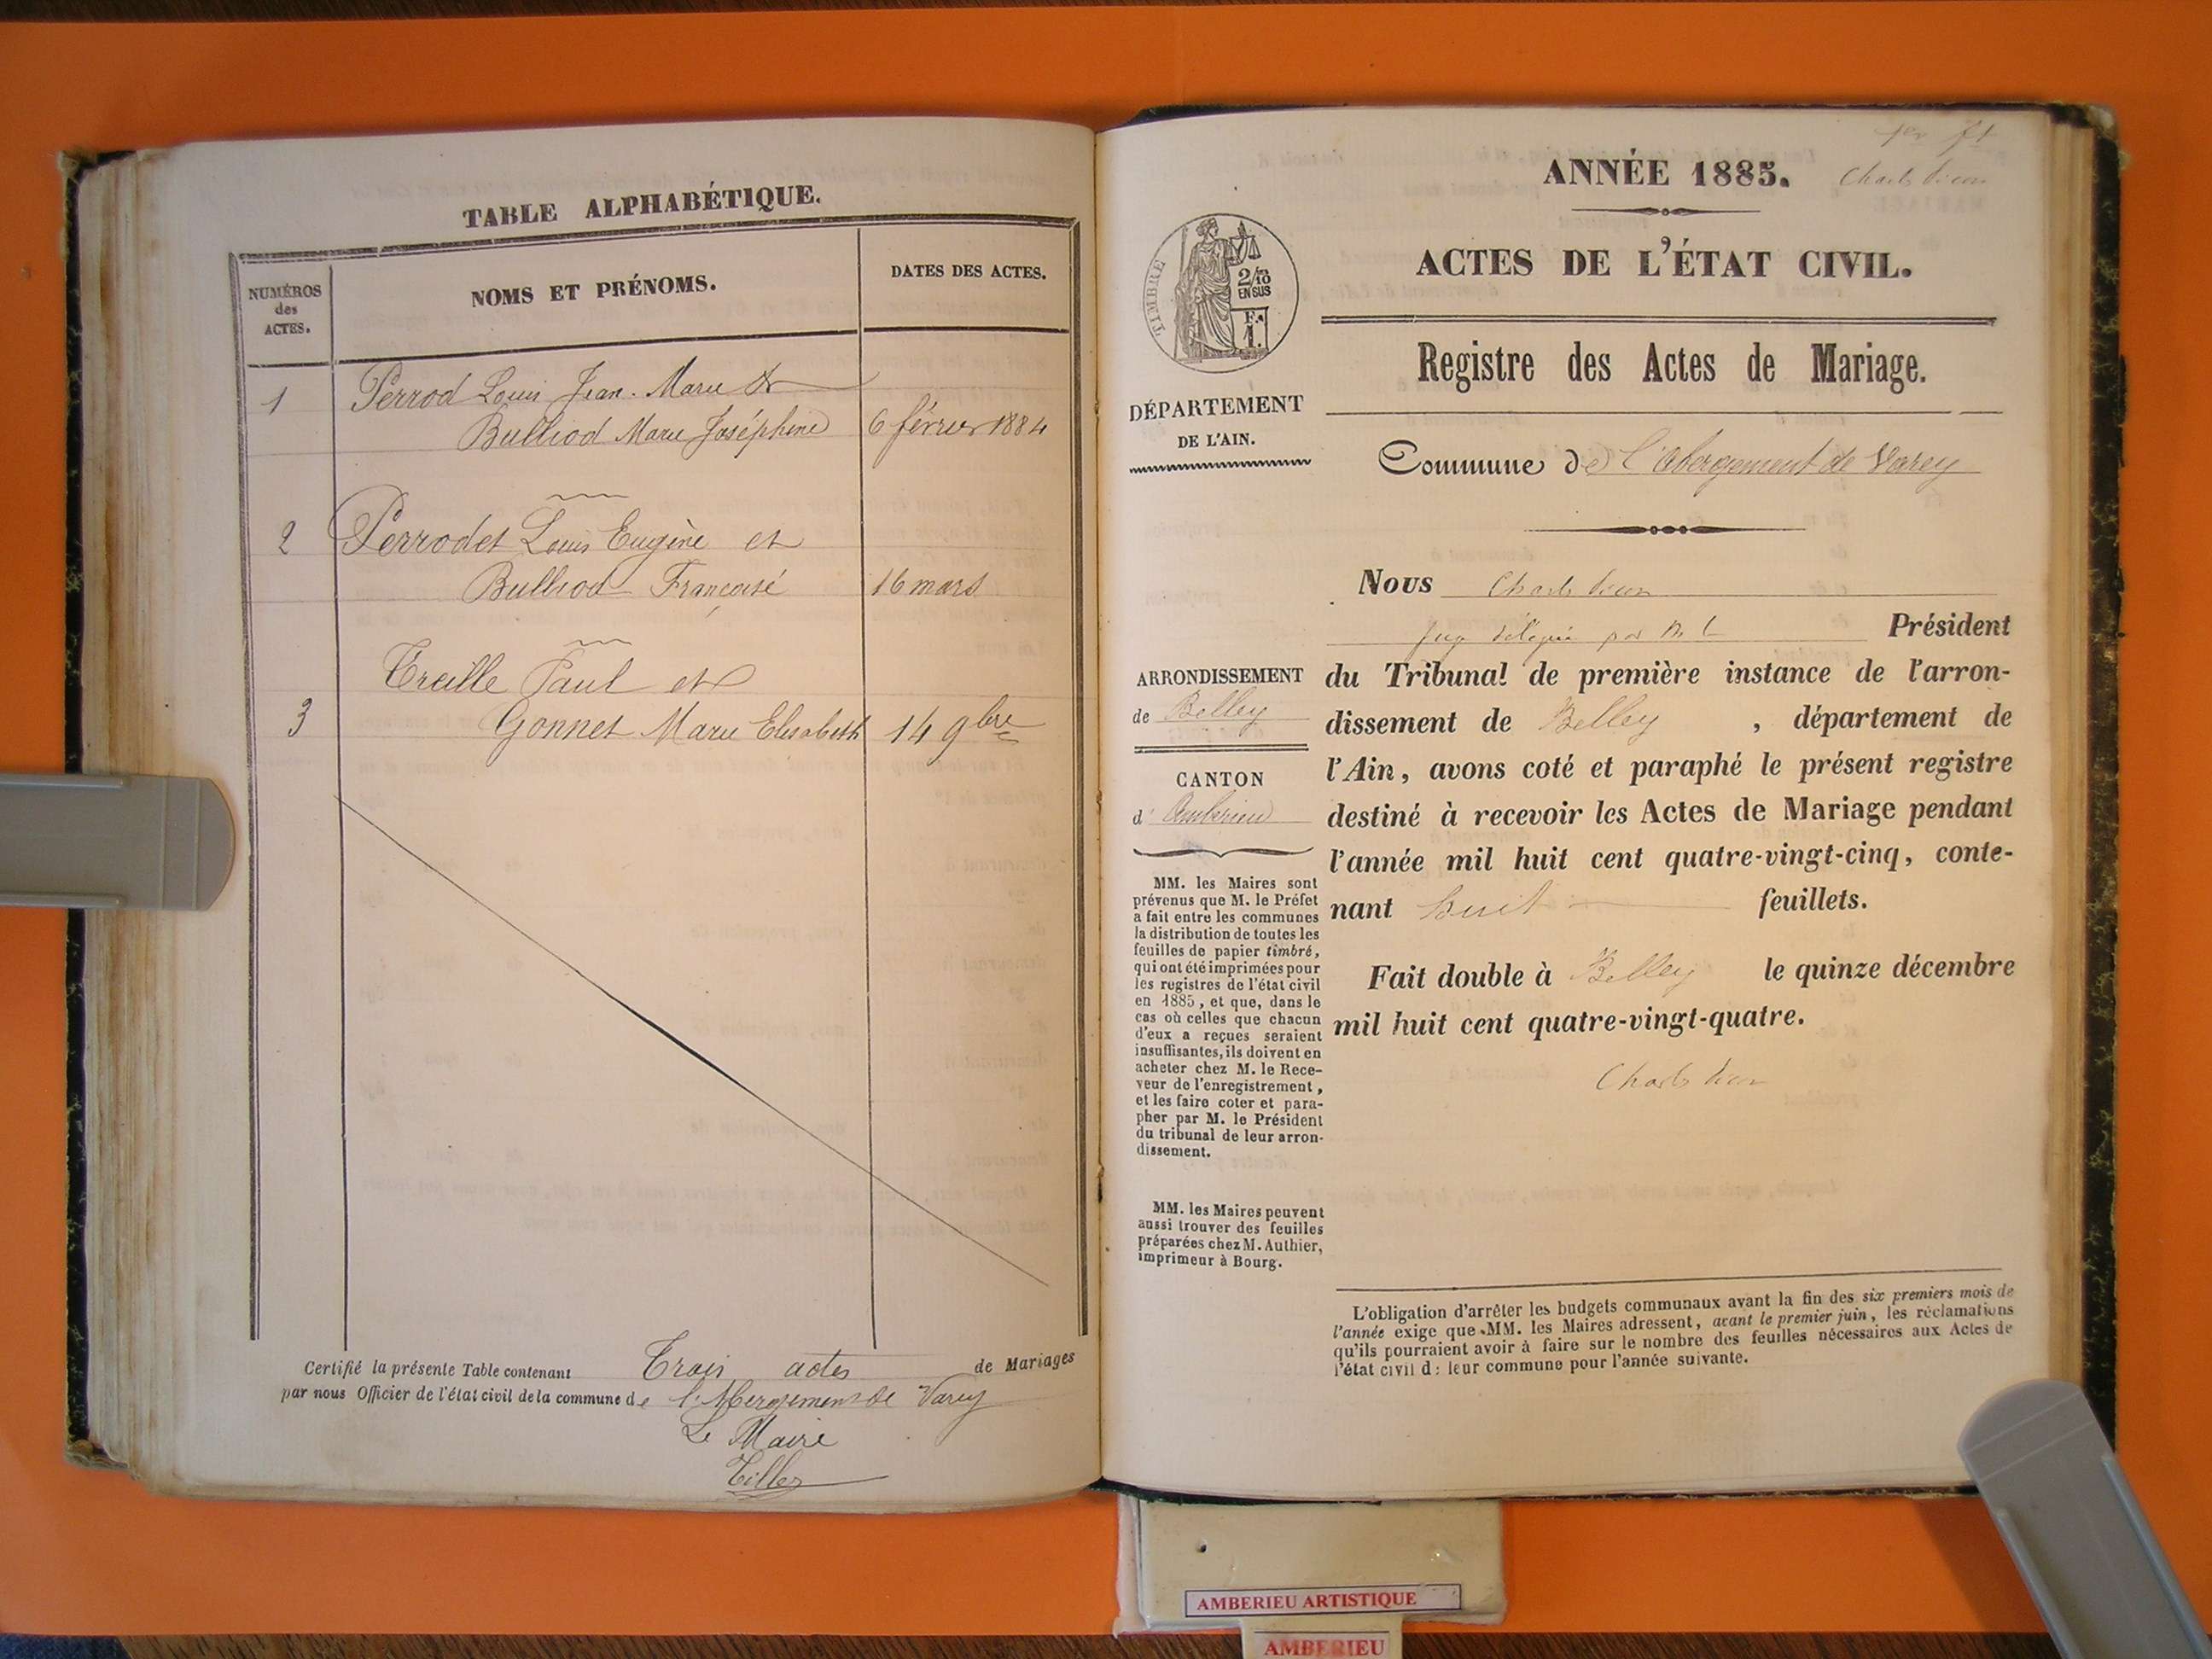 TABLE ALPHABÉTIQUE.
NUMÉROS
des
ACTES.
NOMS ET PRÉNOMS.
DATES DES ACTES.
1
Perrod Louis Jean-Marie &
Bulliod Marie Joséphine
6 février 1884
2
Perrodet Louis Eugène et
Bulliod Françoise
16 mars
Treille Paul et
3
Gonnet Marie Elisabeth
14 9bre
Certifié la présente Table contenant Trois actes de Mariages
par nous Officier de l'état civil de la commune de l'Abergement de Varey
Le Maire
Tiller
ANNÉE 1885.
ACTES DE L'ÉTAT CIVIL.
TIMBRE
2/10
EN SUS
F.
1.
Registre des Actes de Mariage.
DÉPARTEMENT
DE L'AIN.
Commune de l'Abergement de Varey
Nous
juge délégué par M. l Président
ARRONDISSEMENT
de Belley
CANTON
d' Ambérieu
du Tribunal de première instance de l'arron-
dissement de Belley, département de
l'Ain, avons coté et paraphé le présent registre
destiné à recevoir les Actes de Mariage pendant
l'année mil huit cent quatre-vingt-cinq, conte-
nant huit feuillets.
Fait double à Belley le quinze décembre
mil huit cent quatre-vingt-quatre.
MM. les Maires sont
prévenus que M. le Préfet
a fait entre les communes
la distribution de toutes les
feuilles de papier timbré,
qui ont été imprimées pour
les registres de l'état civil
en 1885, et que, dans le
cas où celles que chacun
d'eux a reçues seraient
insuffisantes, ils doivent en
acheter chez M. le Rece-
veur de l'enregistrement,
et les faire coter et para-
pher par M. le Président
du tribunal de leur arron-
dissement.
MM. les Maires peuvent
aussi trouver des feuilles
préparées chez M. Authier,
imprimeur à Bourg.
L'obligation d'arrêter les budgets communaux avant la fin des six premiers mois de
l'année exige que MM. les Maires adressent, avant le premier juin, les réclamations
qu'ils pourraient avoir à faire sur le nombre des feuilles nécessaires aux Actes de
l'état civil de leur commune pour l'année suivante.
AMBERIEU ARTISTIQUE
AMBERIEU